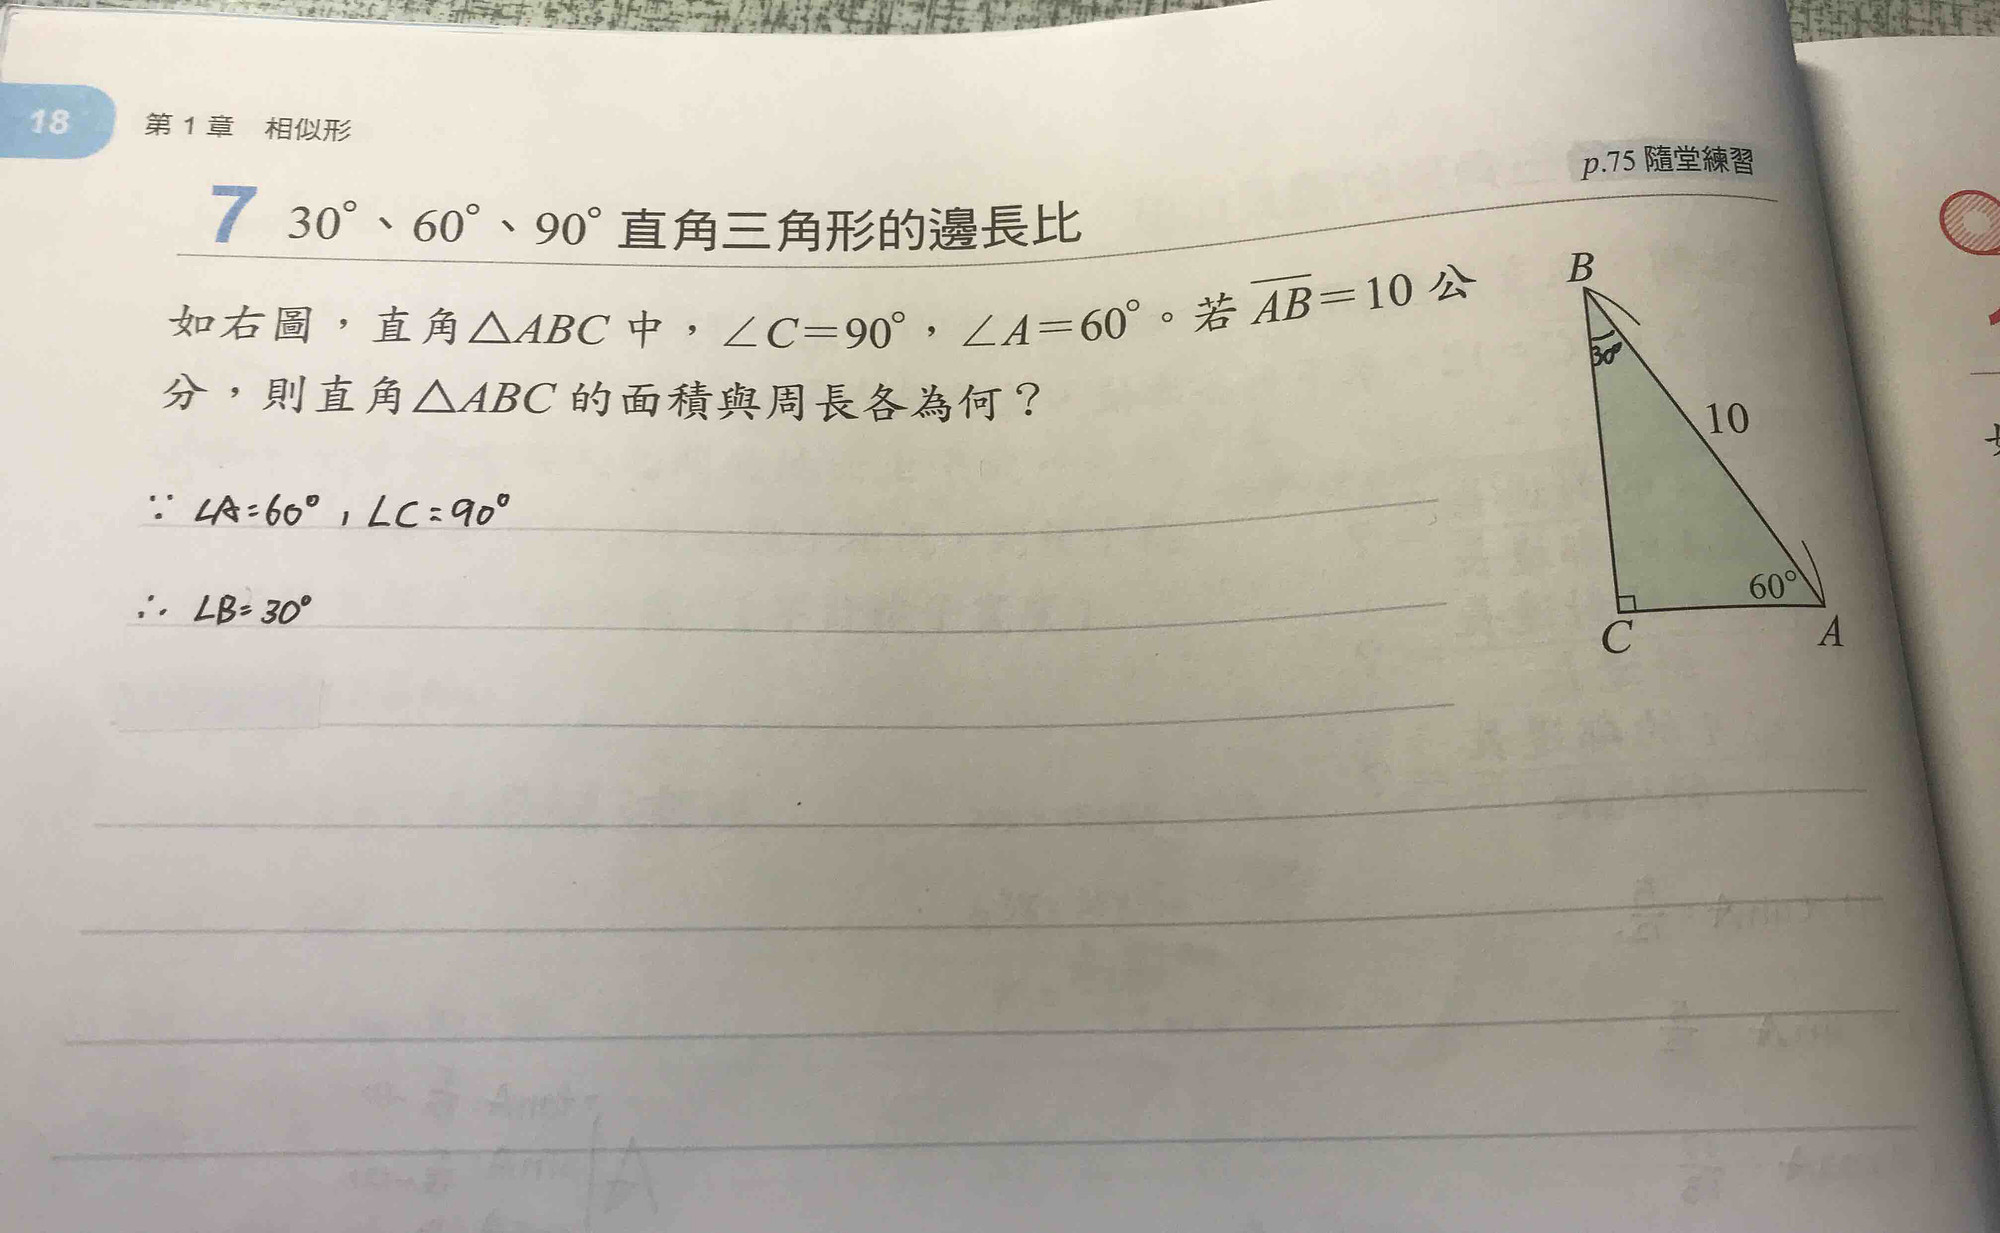 18
第 1 章 相似形
p.75 隨堂練習
7 30°、60°、90° 直角三角形的邊長比
如右圖，直角△ABC 中，∠C＝90°，∠A＝60°。若 A̅B̅＝10 公
分，則直角△ABC 的面積與周長各為何？
B
30°
10
60°
C
A
∵ ∠A=60°, ∠C=90°
∴ ∠B=30°